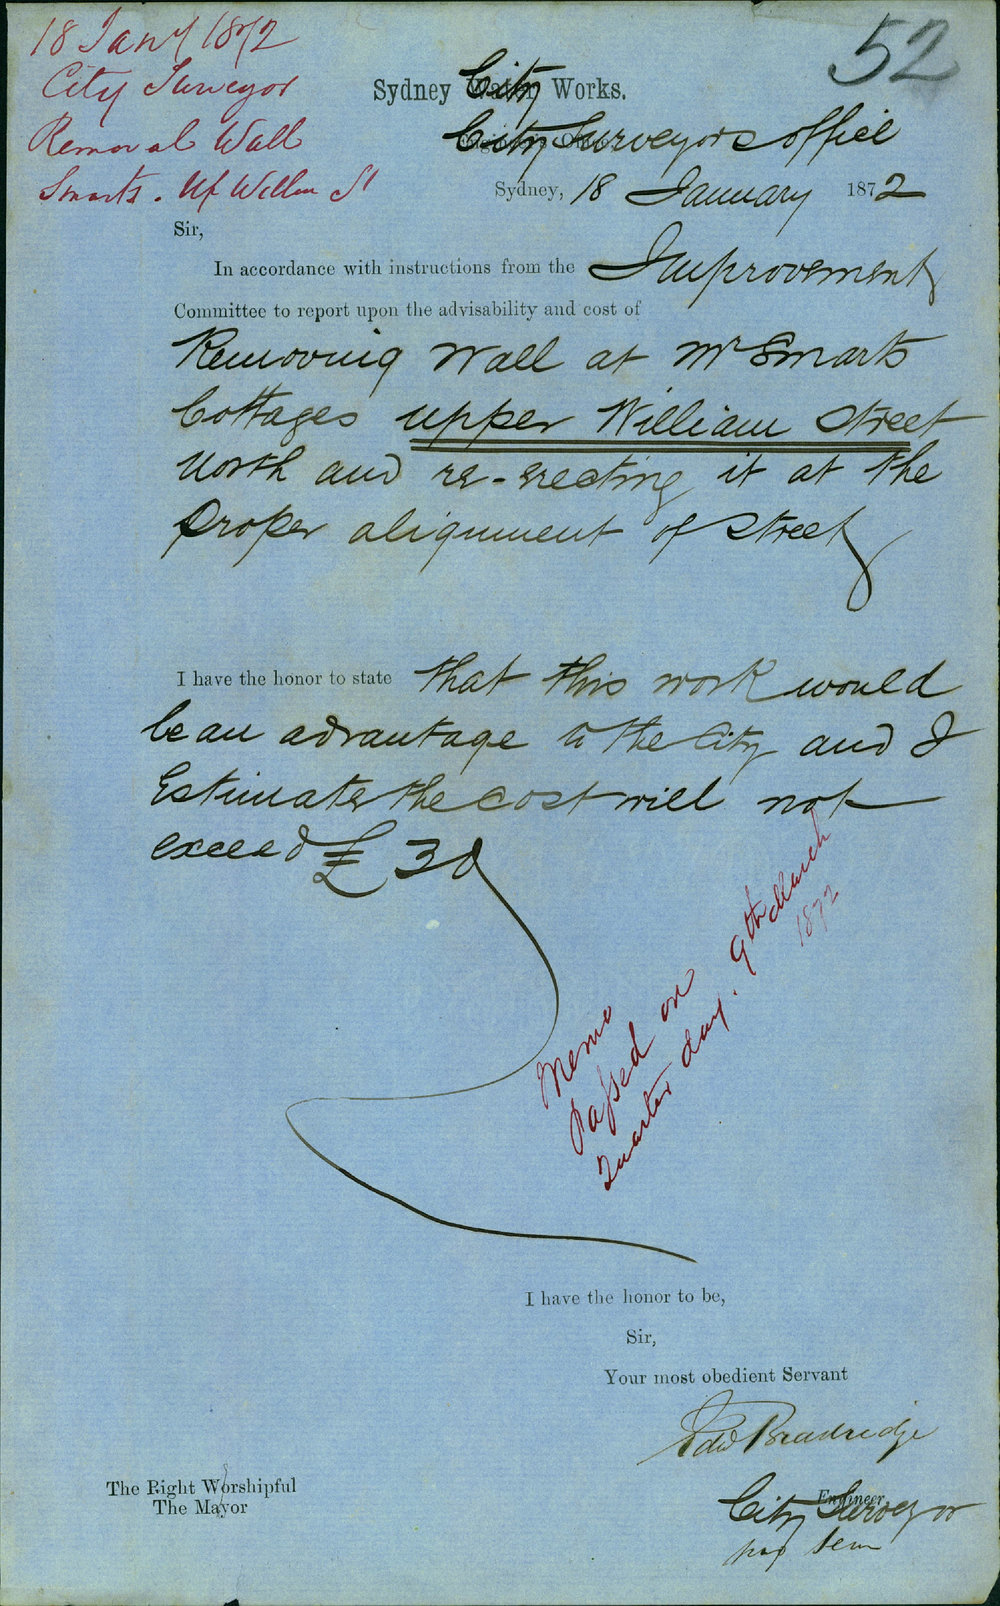 18 Jany 1872
City Surveyor
Removal Wall
Smarts. Up Willm St
52
Sydney City Works.
City Surveyors office
Sydney, 18 January 1872
Sir,
In accordance with instructions from the Improvement
Committee to report upon the advisability and cost of
Removing Wall at Mr Smarts
Cottages upper William Street
North and re-erecting it at the
proper alignment of street
I have the honor to state that this work would
be an advantage to the City and I
Estimate the cost will not
exceed £30
Memo
Passed on
Quarter day. 9th March
1872
I have the honor to be,
Sir,
Your most obedient Servant
Edwd Bradridge
The Right Worshipful
The Mayor
Engineer
City Surveyor
pro tem